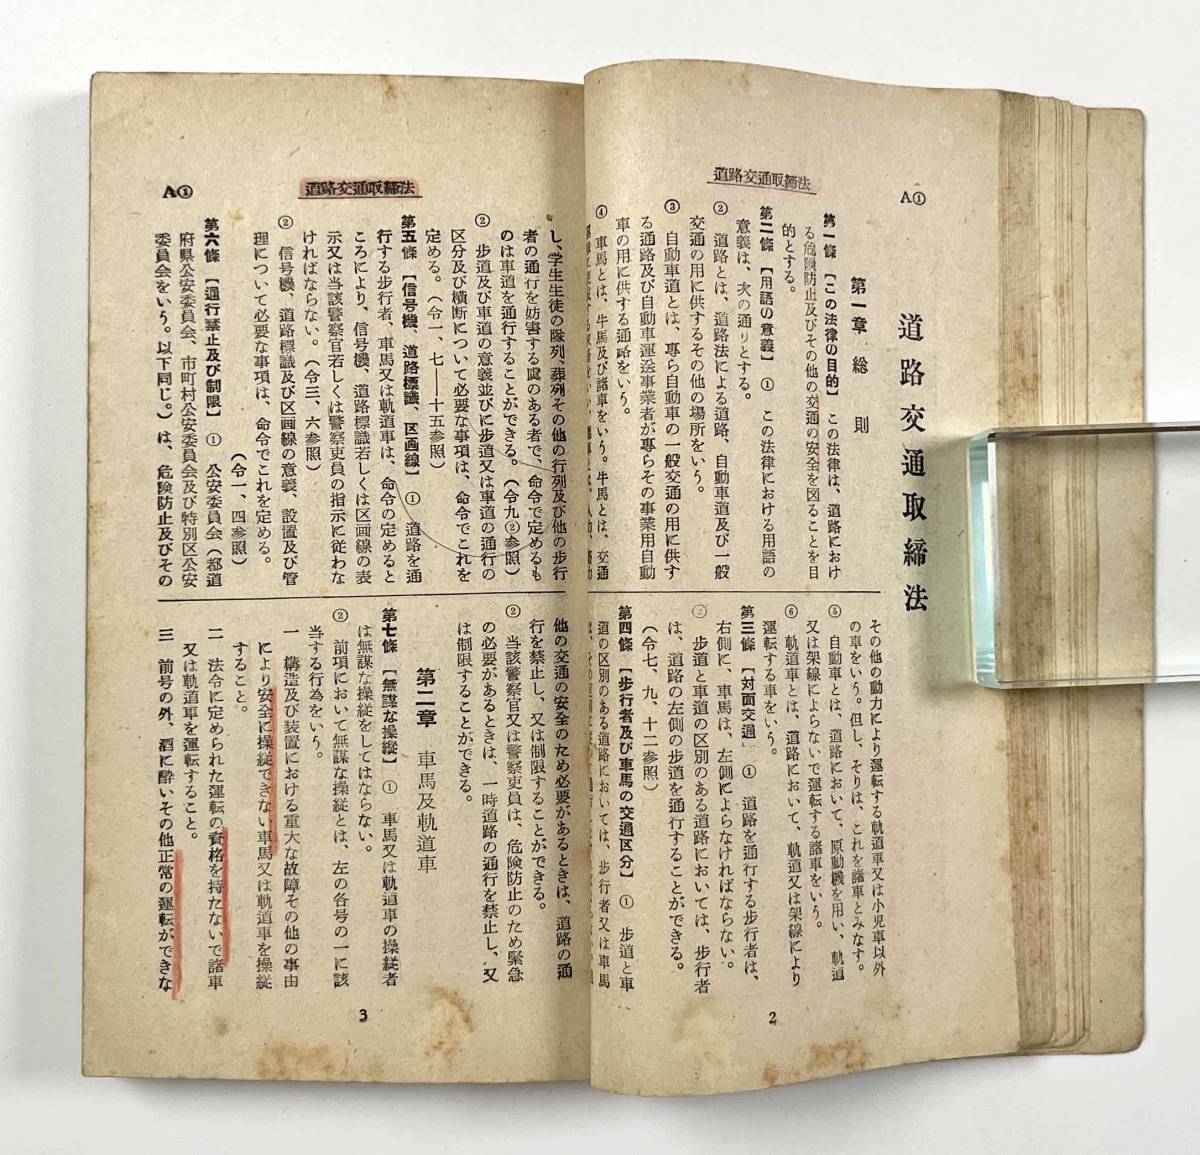 道路交通取締法
A①
道路交通取締法
第一章 総則
第一條【この法律の目的】 この法律は、道路におけ
る危険防止及びその他の交通の安全を図ることを目
的とする。
第二條【用語の意義】 ① この法律における用語の
意義は、次の通りとする。
② 道路とは、道路法による道路、自動車道及び一般
交通の用に供するその他の場所をいう。
③ 自動車道とは、専ら自動車の一般交通の用に供す
る通路及び自動車運送事業者が専らその事業用自動
車の用に供する通路をいう。
④ 車馬とは、牛馬及び諸車をいう。牛馬とは、交通
その他の動力により運転する軌道車又は小児車以外
の車をいう。但し、そりは、これを諸車とみなす。
⑤ 自動車とは、道路において、原動機を用い、軌道
又は架線によらないで運転する諸車をいう。
⑥ 軌道車とは、道路において、軌道又は架線により
運転する車をいう。
第三條【対面交通】 ① 道路を通行する歩行者は、
右側に、車馬は、左側によらなければならない。
② 歩道と車道の区別のある道路においては、歩行者
は、道路の左側の歩道を通行することができる。
(令七、九、十二参照)
第四條【歩行者及び車馬の交通区分】 ① 歩道と車
道の区別のある道路においては、歩行者又は車馬
2
A①
道路交通取締法
し、学生生徒の隊列、葬列その他の行列及び他の歩行
者の通行を妨害する虞のある者で、命令で定めるも
のは車道を通行することができる。(令九②参照)
② 歩道及び車道の意義並びに歩道又は車道の通行の
区分及び横断について必要な事項は、命令でこれを
定める。(令一、七——十五参照)
第五條【信号機、道路標識、区画線】 ① 道路を通
行する歩行者、車馬又は軌道車は、命令の定めると
ころにより、信号機、道路標識若しくは区画線の表
示又は当該警察官若しくは警察吏員の指示に従わな
ければならない。(令三、六参照)
② 信号機、道路標識及び区画線の意義、設置及び管
理について必要な事項は、命令でこれを定める。
(令一、四参照)
第六條【通行禁止及び制限】 ① 公安委員会(都道
府県公安委員会、市町村公安委員会及び特別区公安
委員会をいう。以下同じ。)は、危険防止及びその
他の交通の安全のため必要があるときは、道路の通
行を禁止し、又は制限することができる。
② 当該警察官又は警察吏員は、危険防止のため緊急
の必要があるときは、一時道路の通行を禁止し、又
は制限することができる。
第二章 車馬及軌道車
第七條【無謀な操縦】 ① 車馬又は軌道車の操縦者
は無謀な操縦をしてはならない。
② 前項において無謀な操縦とは、左の各号の一に該
当する行為をいう。
一 構造及び装置における重大な故障その他の事由
により安全に操縦できない車馬又は軌道車を操縦
すること。
二 法令に定められた運転の資格を持たないで諸車
又は軌道車を運転すること。
三 前号の外、酒に酔いその他正常の運転ができな
3